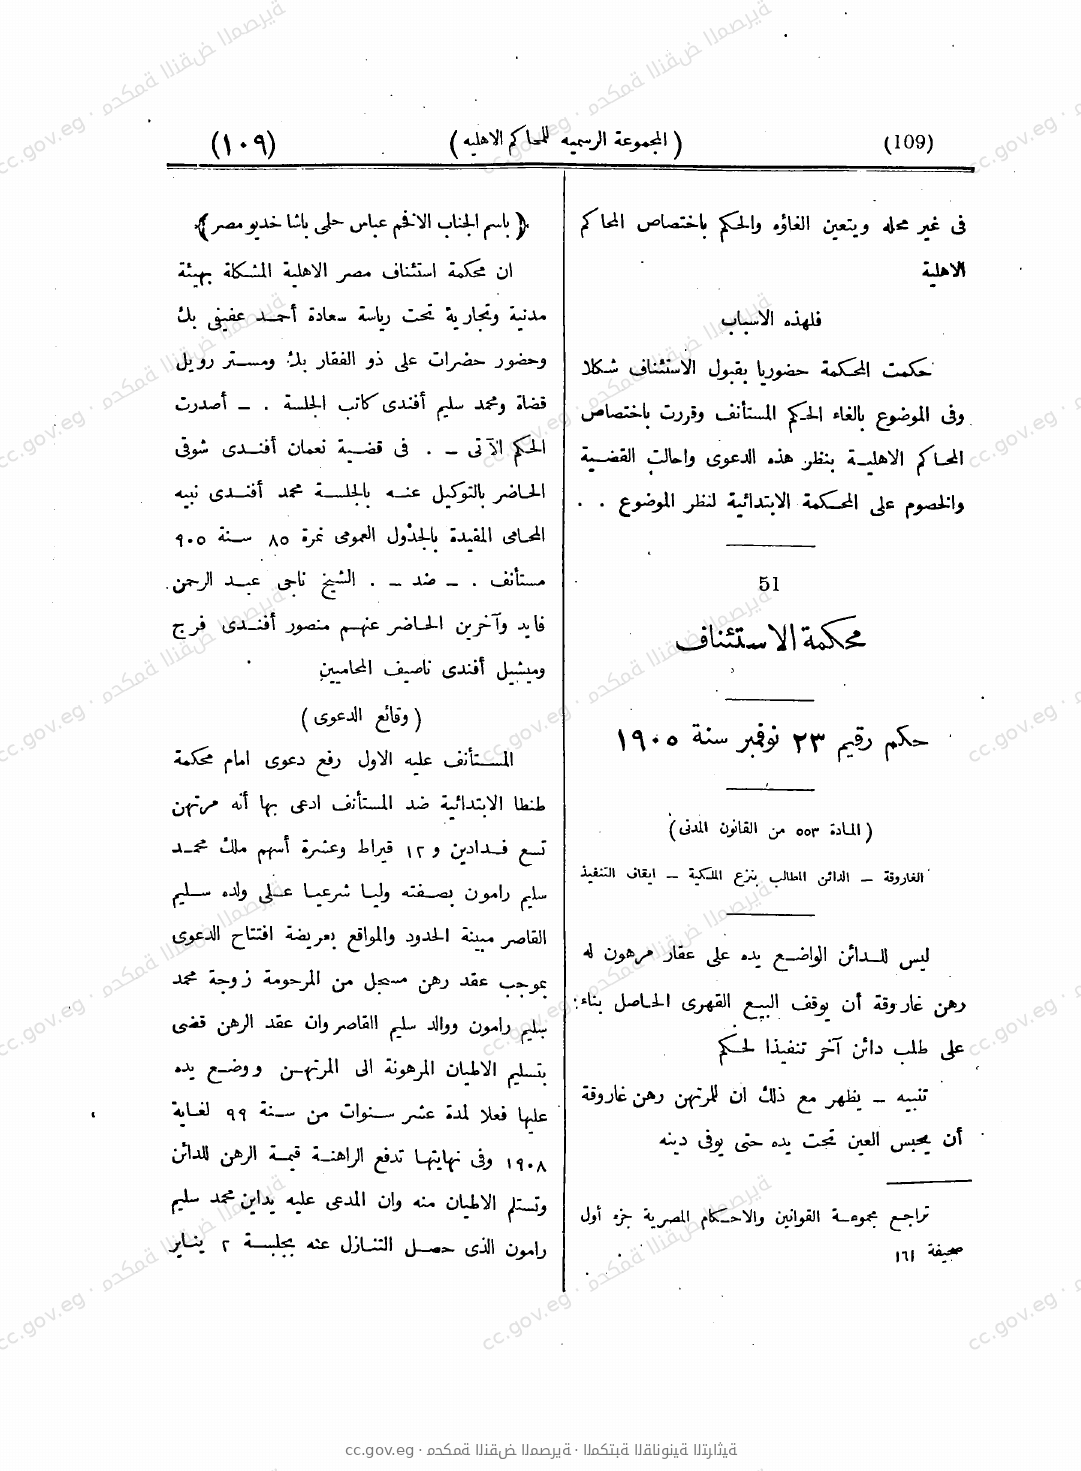 (109)
(المجموعة الرسميه للمحاكم الاهليه)
(١٠٩)
فى غير محله ويتعين الغاؤه والحكم باختصاص المحاكم
الاهلية
فلهذه الاسباب
حكمت المحكمة حضوريا بقبول الاستئناف شكلا
وفى الموضوع بالغاء الحكم المستأنف وقررت باختصاص
المحاكم الاهلية بنظر هذه الدعوى واحالت القضية
والخصوم على المحكمة الابتدائية لنظر الموضوع . .
51
محكمة الاستئناف
حكم رقيم ٢٣ نوفمبر سنة ١٩٠٥
(المادة ٥٥٣ من القانون المدنى)
الغاروقة ــ الدائن المطالب بنزع الملكية ــ ايقاف التنفيذ
ليس للدائن الواضع يده على عقار مرهون له
رهن غاروقة أن يوقف البيع القهرى الحاصل بناء
على طلب دائن آخر تنفيذا لحكم
تنبيه ــ يظهر مع ذلك ان للمرتهن رهن غاروقة
أن يحبس العين تحت يده حتى يوفى دينه
تراجع مجموعة القوانين والاحكام المصرية جزء أول
صحيفة ١٦١
﴿باسم الجناب الافخم عباس حلمى باشا خديو مصر﴾
ان محكمة استئناف مصر الاهلية المشكلة بهيئة
مدنية وتجارية تحت رياسة سعادة أحمد عفيفى بك
وحضور حضرات على ذو الفقار بك ومستر رويل
قضاة ومحمد سليم أفندى كاتب الجلسة . ــ أصدرت
الحكم الآتى ــ . فى قضية نعمان أفندى شوقى
الحاضر بالتوكيل عنه بالجلسة محمد أفندى نبيه
المحامى المقيدة بالجدول العمومى نمرة ٨٥ سنة ٩٠٥
مستأنف . ــ ضد ــ . الشيخ ناجى عبد الرحمن
فايد وآخرين الحاضر عنهم منصور أفندى فرج
وميشيل أفندى ناصيف المحامين
(وقائع الدعوى)
المستأنف عليه الاول رفع دعوى امام محكمة
طنطا الابتدائية ضد المستأنف ادعى بها أنه مرتهن
تسع فدادين و ١٢ قيراط وعشرة أسهم ملك محمد
سليم رامون بصفته وليا شرعيا على ولده سليم
القاصر مبينة الحدود والمواقع بعريضة افتتاح الدعوى
بموجب عقد رهن مسجل من المرحومة زوجة محمد
سليم رامون ووالد سليم القاصر وان عقد الرهن قضى
بتسليم الاطيان المرهونة الى المرتهن ووضع يده
عليها فعلا لمدة عشر سنوات من سنة ٩٩ لغاية
١٩٠٨ وفى نهايتها تدفع الراهنة قيمة الرهن للدائن
وتستلم الاطيان منه وان المدعى عليه يداين محمد سليم
رامون الذى حصل التنازل عنه بجلسة ٢ يناير
cc.gov.eg · محكمة النقض المصرية · المكتبة القانونية التراثية